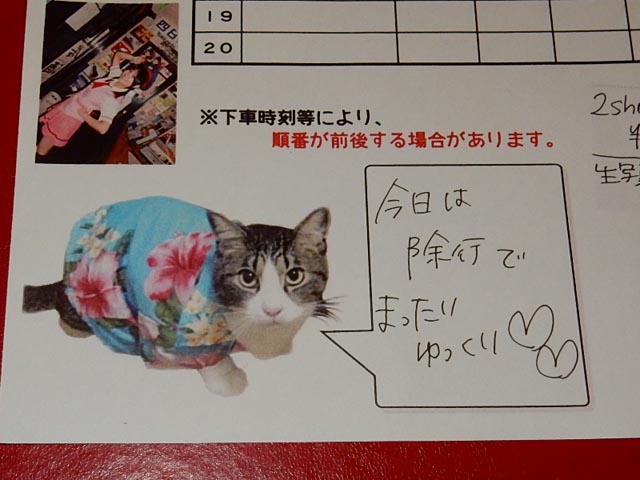 19
20
四日
※下車時刻等により、
順番が前後する場合があります。
2sh
生写
今日は
除行で
まったり
ゆっくり♡♡